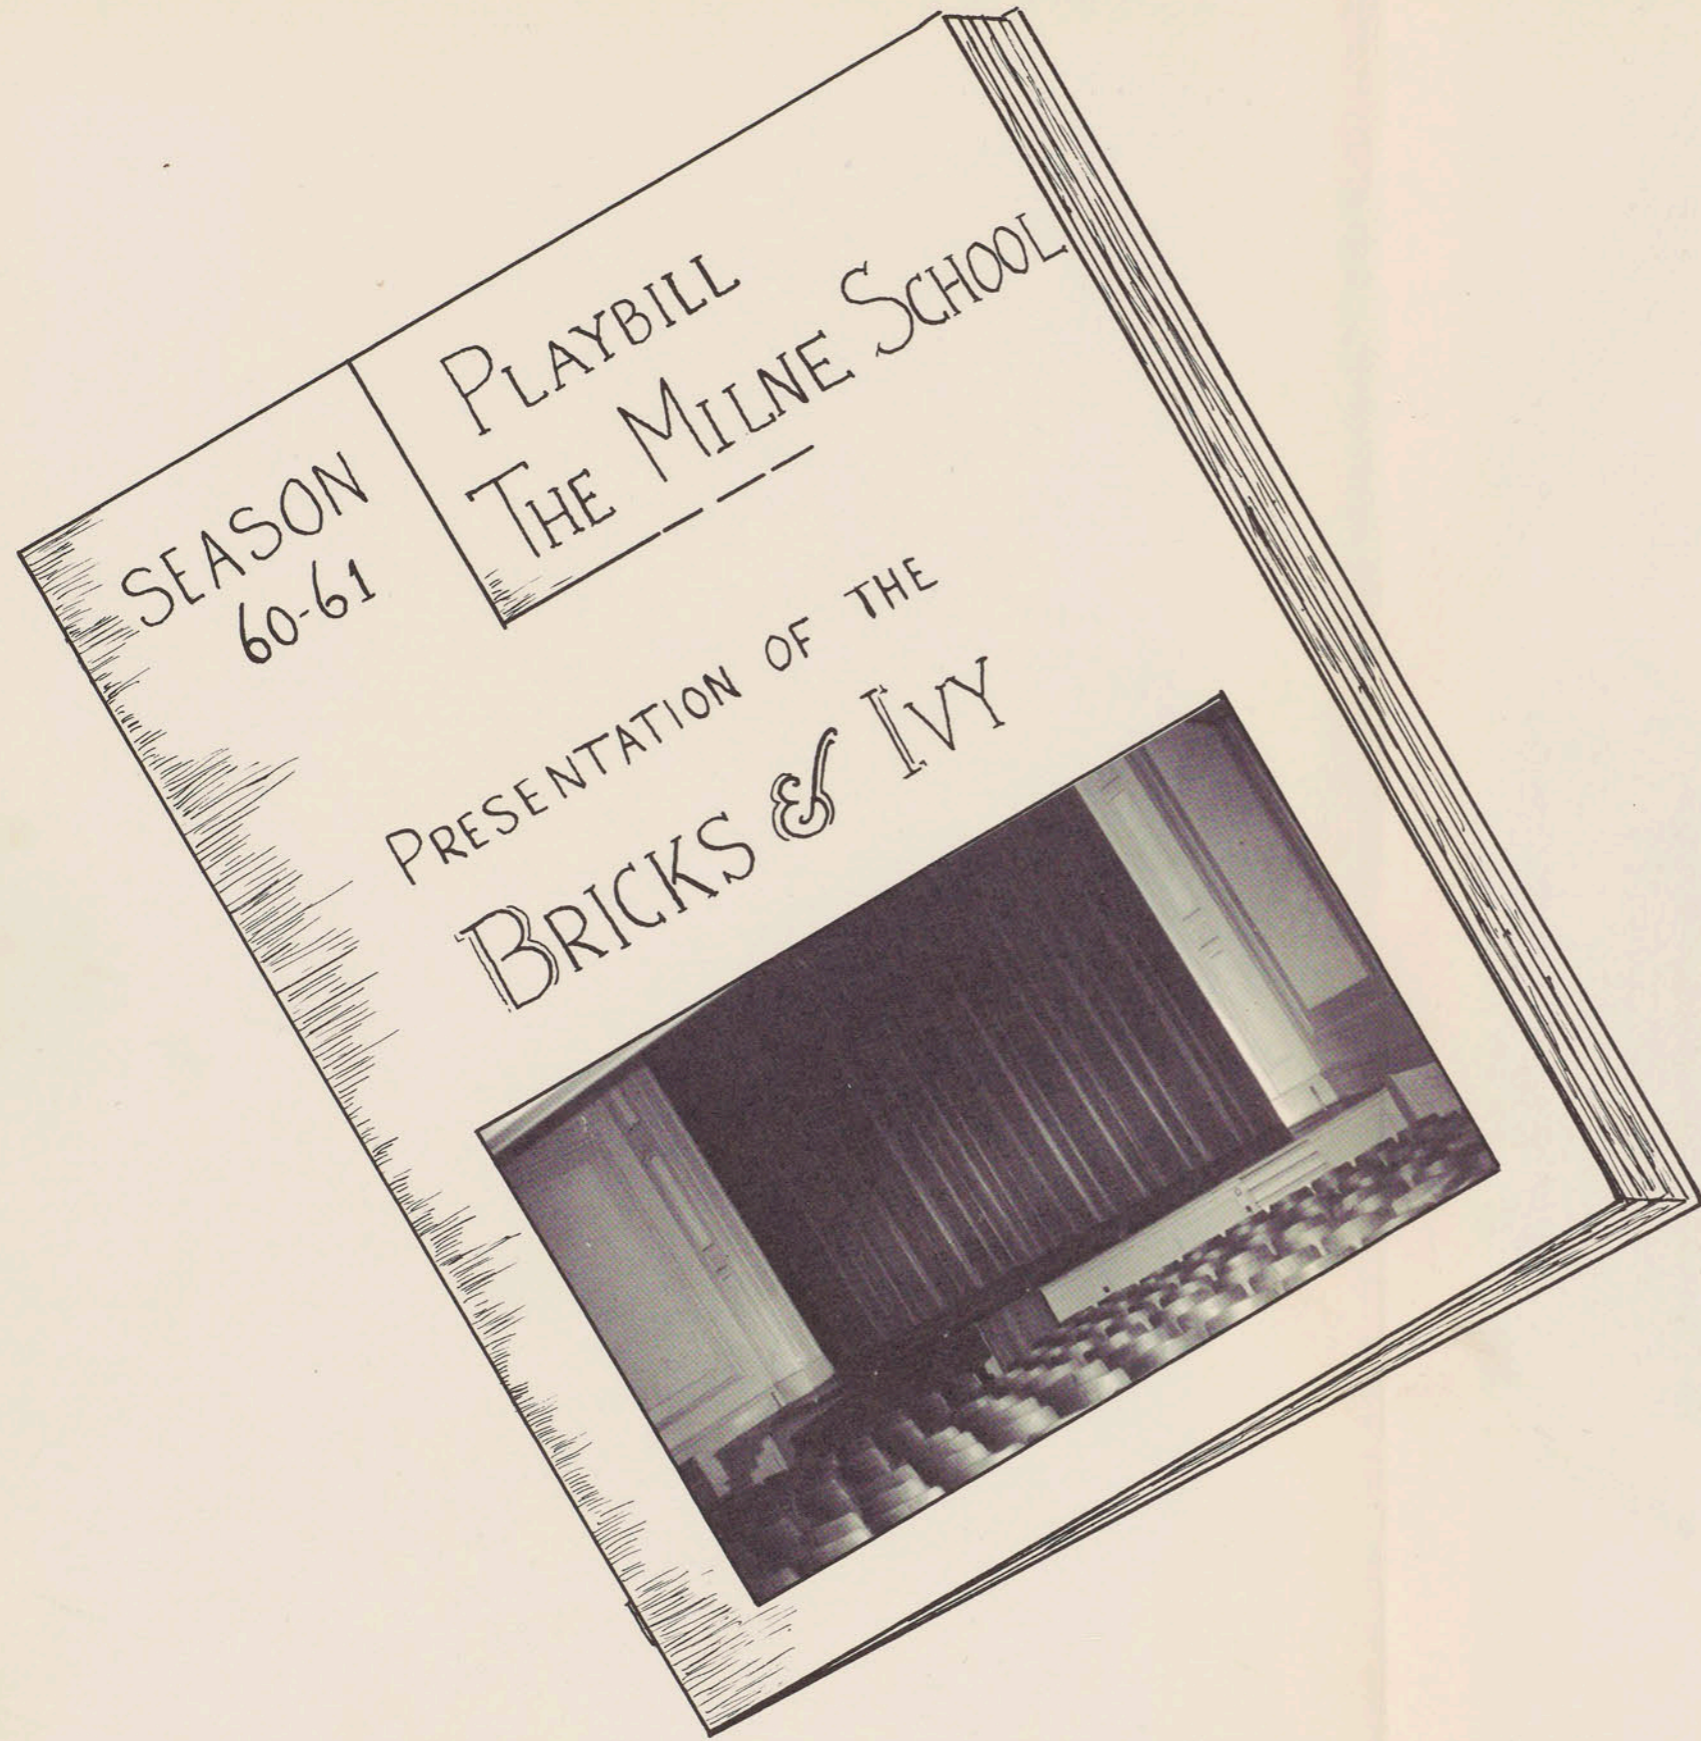 SEASON
60-61
PLAYBILL
THE MILNE SCHOOL
PRESENTATION OF THE
BRICKS & IVY